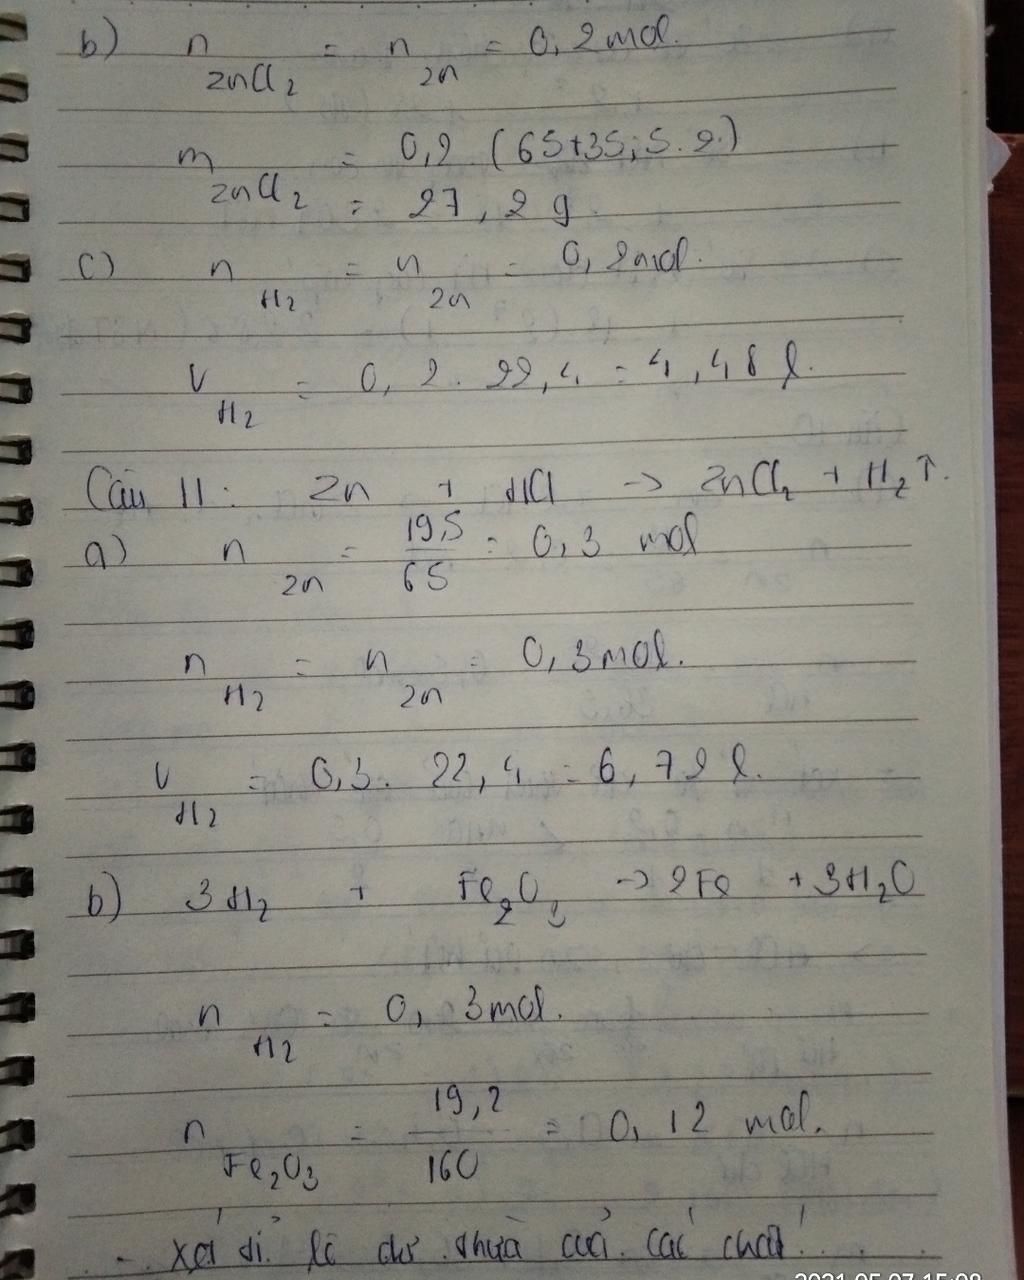 b) n ZnCl2 = n Zn = 0,2 mol.
m ZnCl2 = 0,2 (65+35,5.2)
= 27,2 g
c) n H2 = n Zn = 0,2 mol.
V H2 = 0,2. 22,4 = 4,48 l.
Câu 11: Zn + HCl → ZnCl2 + H2↑.
a) n Zn = 19,5/65 = 0,3 mol
n H2 = n Zn = 0,3 mol.
V H2 = 0,3. 22,4 = 6,72 l.
b) 3H2 + Fe2O3 → 2Fe + 3H2O
n H2 = 0,3 mol.
n Fe2O3 = 19,2/160 = 0,12 mol.
Xét tỉ lệ dư thừa của các chất
2021.05.07 15:08